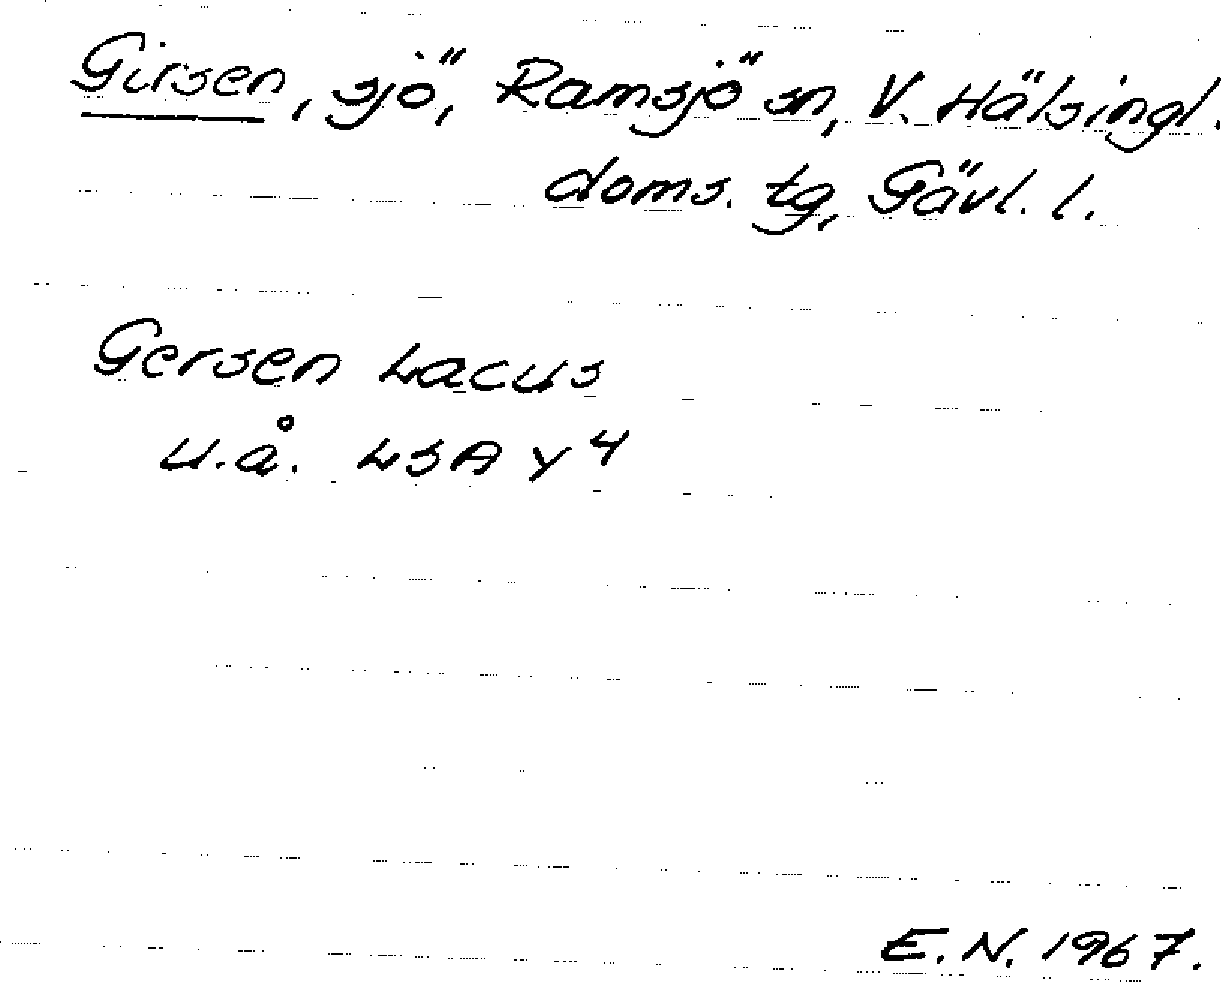 Girsen, sjö, Ramsjö sn, V. Hälsingl.
doms. tg, Gävl. l.
Gersen Lacus
u.å. LSA Y 4
E.N. 1967.